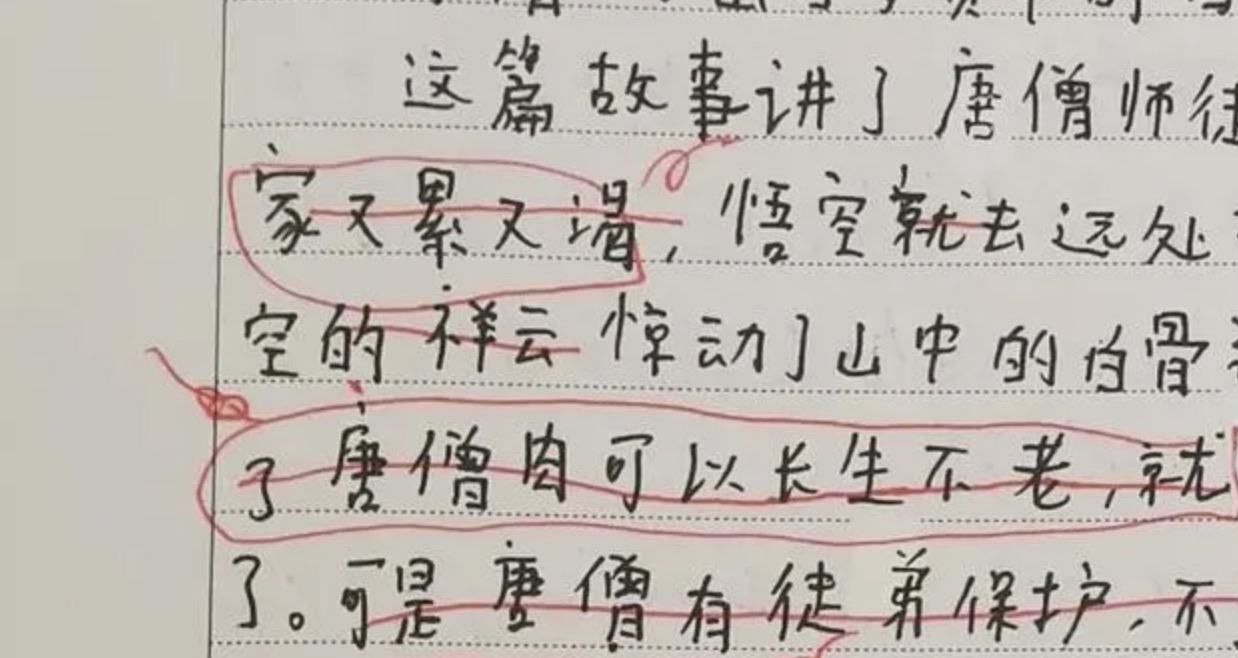 这篇故事讲了唐僧师徒
家又累又渴,悟空就去远处
空的祥云惊动了山中的白骨
了唐僧肉可以长生不老,就
了。可是唐僧有徒弟保护,不